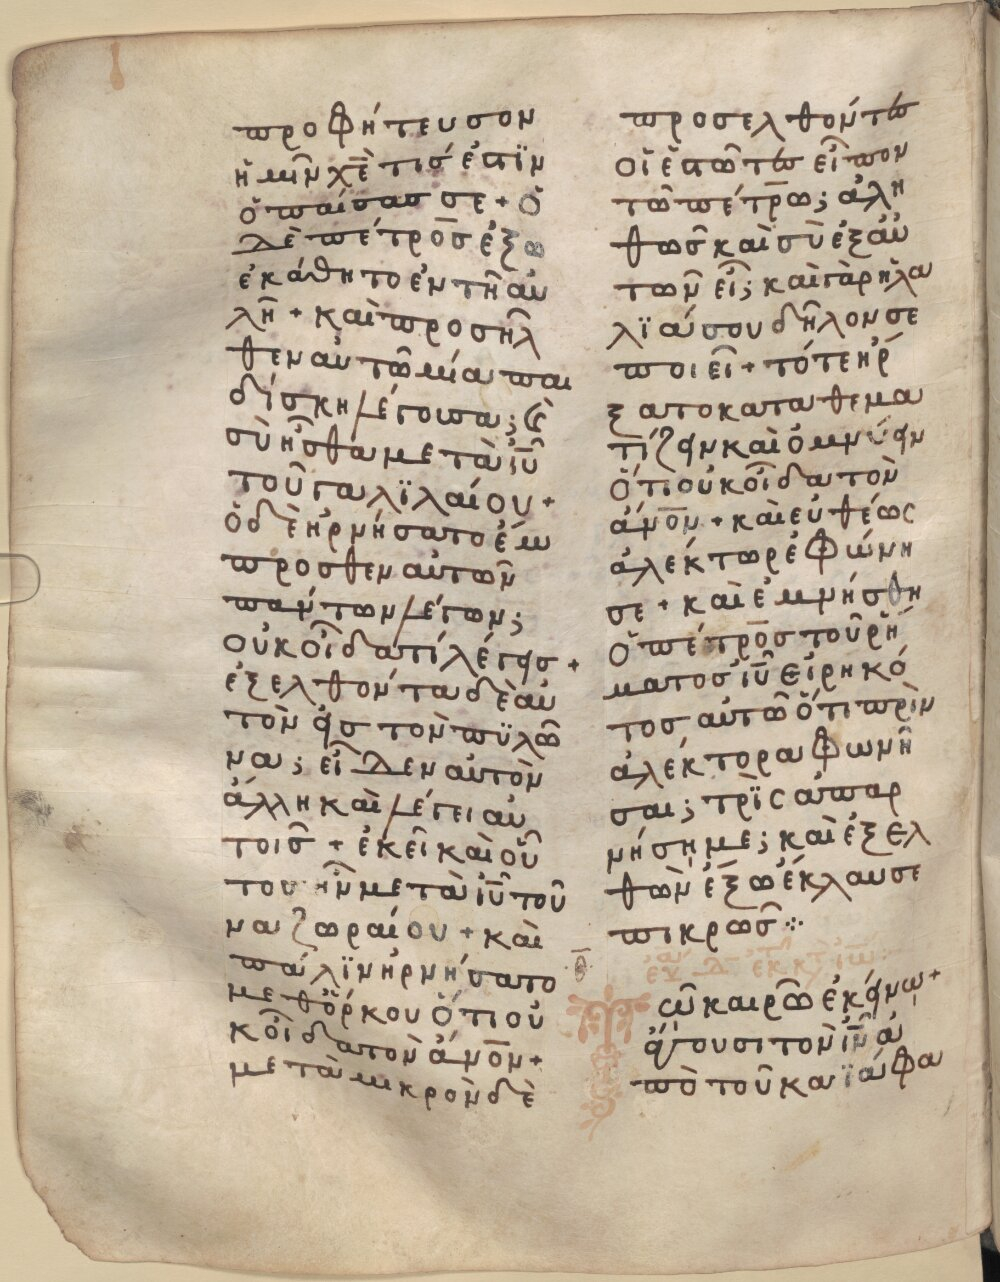 προφήτευσον
ἡμῖν χὲ τίσ ἐστϊν
ὁ παίσασ σε + ὁ
δὲ πέτροσ ἔξω
ἐκάθητο ἐν τῆ αὐ
λῆ + καὶ προσῆλ
θεν αὐτῶ μία παι
δίσκη λέγουσα; καὶ
σὺ ἦσθα μετὰ ἰῦ
τοῦ γαλϊλαίου +
ὁ δὲ ἠρνήσατο ἔμ
προσθεν αὐτῶν
πάντων λέγων;
οὐκ οἶδα τί λέγεισ +
ἐξελθόντα δὲ αὐ
τὸν εἰσ τὸν πϋλῶ
να; εἶδεν αὐτὸν
ἄλλη καὶ λέγει αὐ
τοῖσ + ἐκεῖ καὶ οὗ
τοσ ἦν μετὰ ἰῦ τοῦ
ναζωραίου + καὶ
πάλϊν ἠρνήσατο
μεθ ὅρκου ὅτι οὐ
κ οἶδα τὸν ἄνον +
μετὰ μικρὸν δὲ
προσελθόντεσ
οἱ ἑστῶτεσ εἶπον
τῶ πέτρω; ἀλη
θῶσ καὶ σὺ ἐξ αὐ
τῶν εἶ; καὶ γὰρ ἡ λα
λϊά σου δῆλον σε
ποιεῖ + τότε ἤρ
ξατο καταθεμα
τίζειν καὶ ὀμνύειν
ὅτι οὐκ οἶδα τὸν
ἄνον + καὶ εὐθέως
ἀλέκτωρ ἐφώνη
σε + καὶ ἐμνήσθη
ὁ πέτροσ τοῦ ῥή
ματοσ ἰῦ εἰρηκό
τοσ αὐτῶ ὅτι πρὶν
ἀλέκτορα φωνῆ
σαι; τρὶς ἀπαρ
νήση με; καὶ ἐξελ
θὼν ἔξω ἔκλαυσε
πικρῶσ ⁘
Τῶ καιρῶ ἐκείνω +
ἄγουσι τὸν ἰν ἀ
πὸ τοῦ καϊάφα